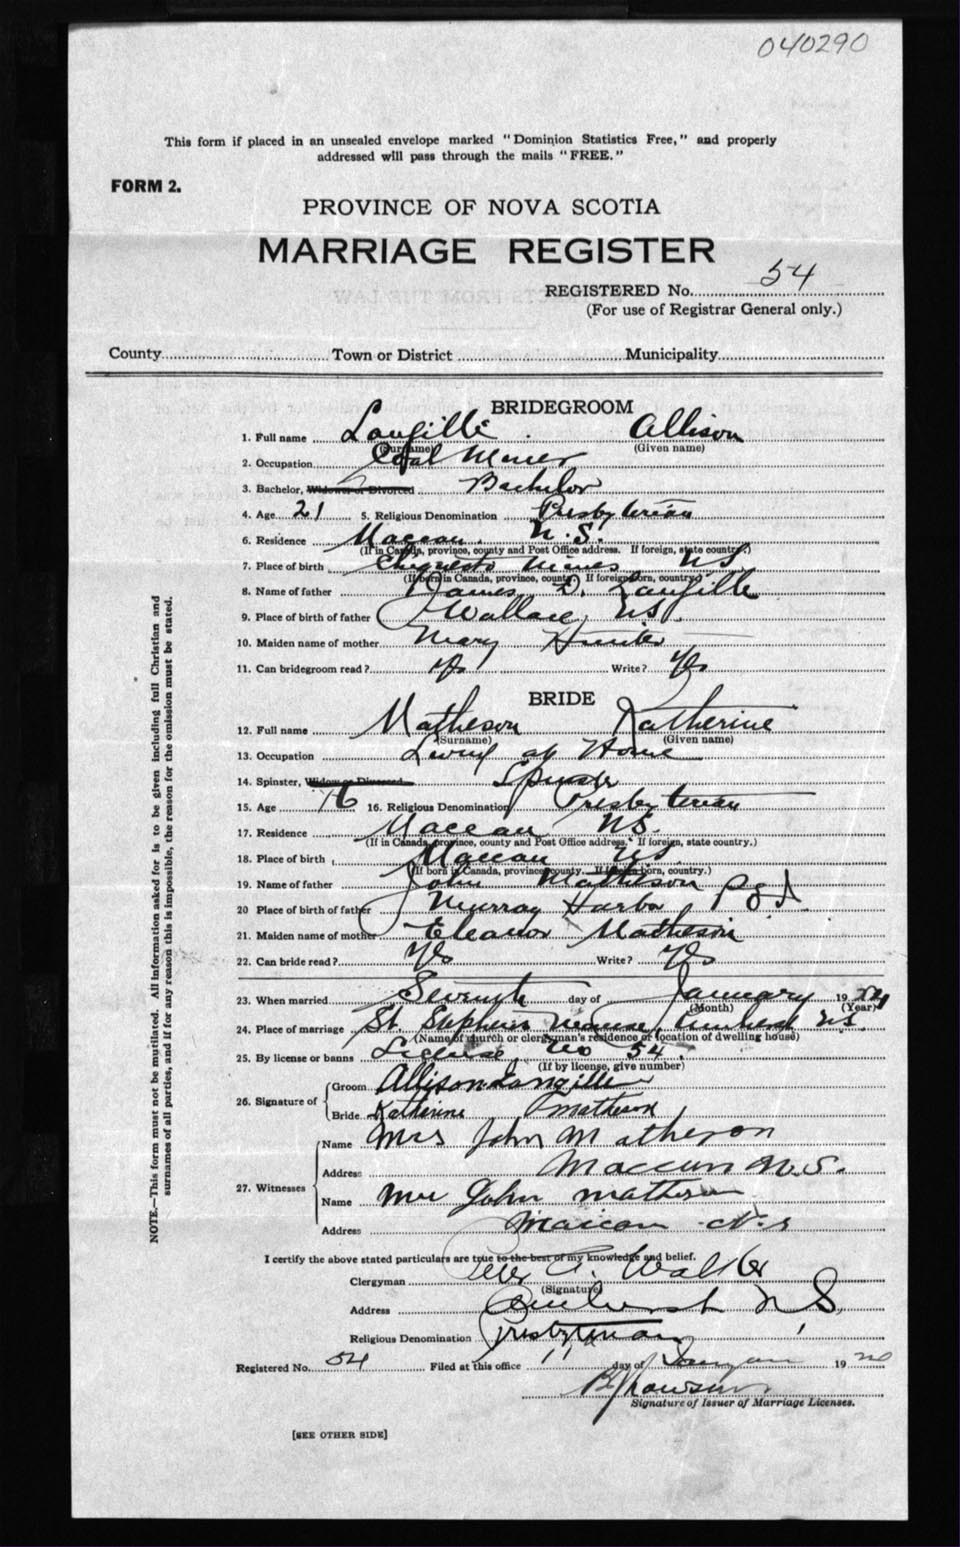 040290
This form if placed in an unsealed envelope marked "Dominion Statistics Free," and properly
addressed will pass through the mails "FREE."
FORM 2.
PROVINCE OF NOVA SCOTIA
MARRIAGE REGISTER
REGISTERED No. 54
(For use of Registrar General only.)
County Town or District Municipality
BRIDEGROOM
1. Full name Langille Allison
(Surname) (Given name)
2. Occupation Coal Miner
3. Bachelor, Widower or Divorced Bachelor
4. Age 21 5. Religious Denomination Presbyterian
6. Residence Maccan N.S.
(If in Canada, province, county and Post Office address. If foreign, state country.)
7. Place of birth Mines NS
(If born in Canada, province, county.) If foreign born, country.)
8. Name of father James D. Langille
9. Place of birth of father Wallace, NS.
10. Maiden name of mother Mary Hunter
11. Can bridegroom read? Yes Write? Yes
BRIDE
12. Full name Matheson Katherine
(Surname) (Given name)
13. Occupation Living at Home
14. Spinster, Widow or Divorced Spinster
15. Age 16 16. Religious Denomination Presbyterian
17. Residence Maccan NS.
(If in Canada, province, county and Post Office address. If foreign, state country.)
18. Place of birth Maccan NS.
(If born in Canada, province, county. If foreign born, country.)
19. Name of father John Matheson
20 Place of birth of father Murray Harbor P E I
21. Maiden name of mother Eleanor Matheson
22. Can bride read? Yes Write? Yes
23. When married Seventh day of January 19
(Month) (Year)
24. Place of marriage St. Stephens Manse, Amherst NS.
(Name of church or clergyman's residence or location of dwelling house)
25. By license or banns License, No 54.
(If by license, give number)
26. Signature of Groom Allison Langille
Bride Katherine Matheson
27. Witnesses Name Mrs John Matheson
Address Maccan N.S.
Name Mr John Matheson
Address Maccan N.S
I certify the above stated particulars are true to the best of my knowledge and belief.
Clergyman Walker
(Signature)
Address Amherst N S.
Religious Denomination Presbyterian
Registered No. 54 Filed at this office 11 day of January 19
Signature of Issuer of Marriage Licenses.
[SEE OTHER SIDE]
NOTE.—This form must not be mutilated. All information asked for is to be given including full Christian and
surnames of all parties, and if for any reason this is impossible, the reason for the omission must be stated.